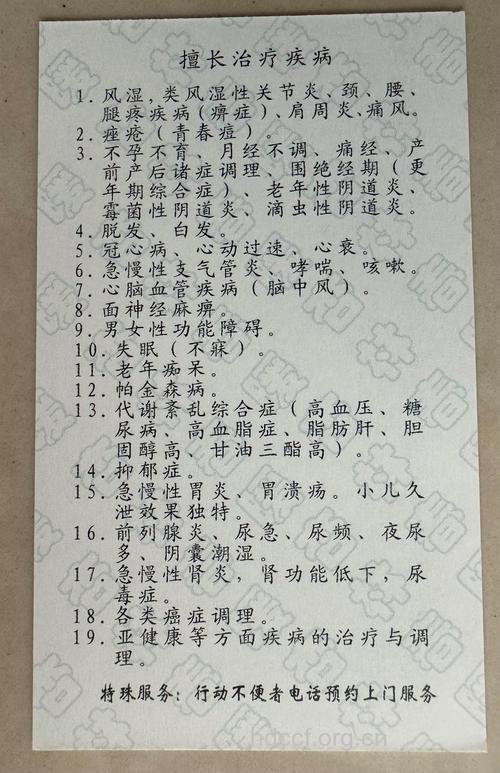 擅长治疗疾病
1.风湿,类风湿性关节炎、颈、腰、
腿疼疾病(痹症)、肩周炎、痛风。
2.痤疮(青春痘)。
3.不孕不育、月经不调、痛经、产
前产后诸症调理、围绝经期(更
年期综合症)、老年性阴道炎、
霉菌性阴道炎、滴虫性阴道炎。
4.脱发、白发。
5.冠心病、心动过速、心衰。
6.急慢性支气管炎、哮喘、咳嗽。
7.心脑血管疾病(脑中风)。
8.面神经麻痹。
9.男女性功能障碍。
10.失眠(不寐)。
11.老年痴呆。
12.帕金森病。
13.代谢紊乱综合症(高血压、糖
尿病、高血脂症、脂肪肝、胆
固醇高、甘油三酯高)。
14.抑郁症。
15.急慢性胃炎、胃溃疡。小儿久
泄效果独特。
16.前列腺炎、尿急、尿频、夜尿
多、阴囊潮湿。
17.急慢性肾炎,肾功能低下,尿
毒症。
18.各类癌症调理。
19.亚健康等方面疾病的治疗与调
理。
特殊服务:行动不便者电话预约上门服务
hdccf.org.cn